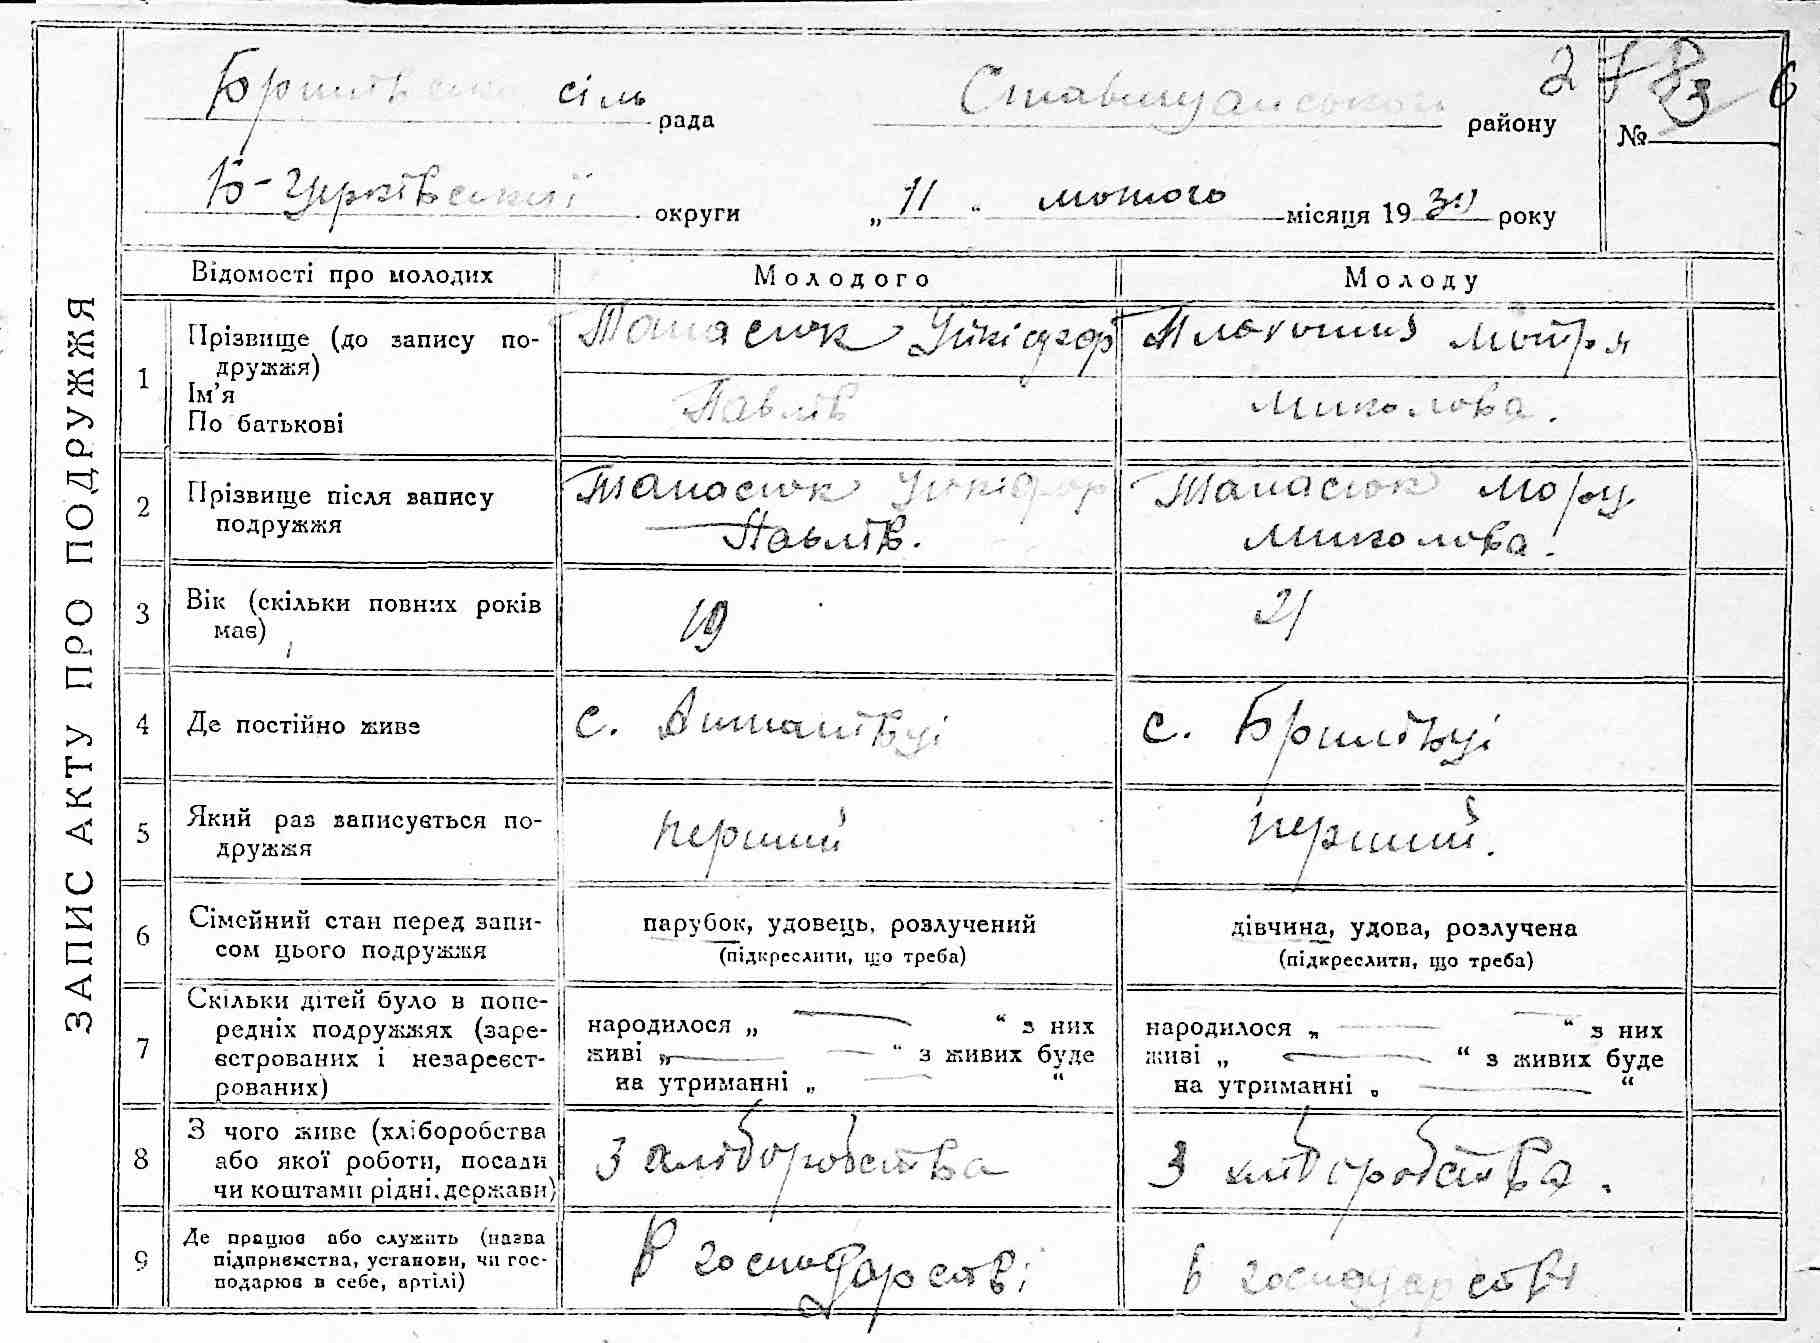 ЗАПИС АКТУ ПРО ПОДРУЖЖЯ
сіль рада
району
№
Б-Церківської округи
„11“ лютого місяця 1930 року
Відомості про молодих Молодого Молоду
1 Прізвище (до запису по-
дружжя)
Ім'я
По батькові
Танасюк Нікіфор
Павлів
Мотря
Миколова.
2 Прізвище після запису
подружжя
Танасюк Нікіфор
Павлів.
Танасюк
Миколова.
3 Вік (скільки повних років
має)
19
21
4 Де постійно живе
с.
с. Брилівці
5 Який раз записується по-
дружжя
перший
перший.
6 Сімейний стан перед запи-
сом цього подружжя
парубок, удовець, розлучений
(підкреслити, що треба)
дівчина, удова, розлучена
(підкреслити, що треба)
7 Скільки дітей було в попе-
редніх подружжях (заре-
єстрованих і незареєст-
рованих)
народилося „ — “ з них
живі „ — “ з живих буде
на утриманні „ — “
народилося „ — “ з них
живі „ — “ з живих буде
на утриманні „ — “
8 З чого живе (хліборобства
або якої роботи, посади
чи коштами рідні, держави)
З хліборобства
З хліборобства.
9 Де працює або служить (назва
підприємства, установи, чи гос-
подарює в себе, артілі)
В господарстві
в господарстві